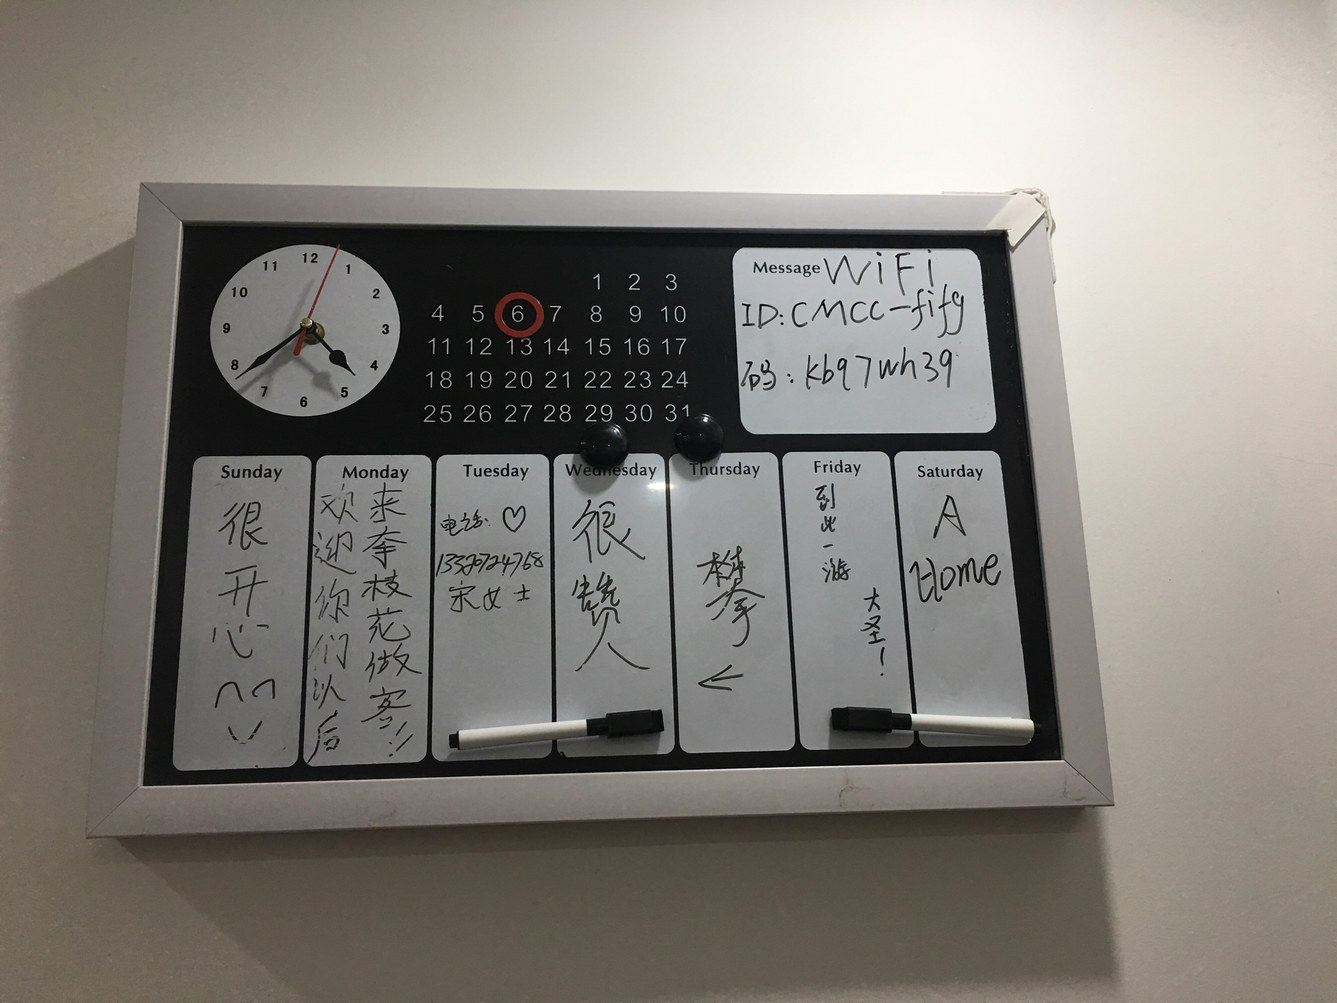 12
1
2
3
4
5
6
7
8
9
10
11
1 2 3
4 5 6 7 8 9 10
11 12 13 14 15 16 17
18 19 20 21 22 23 24
25 26 27 28 29 30 31
Message WiFi
ID:CMCC-fify
码:kb97wh39
Sunday
很
开
心
Monday
欢迎你们以后
来奉枝花做客!!
Tuesday
电话:♡
宋女士
Wednesday
很
赞
人
Thursday
Friday
到此一游
大圣!
Saturday
A
Home